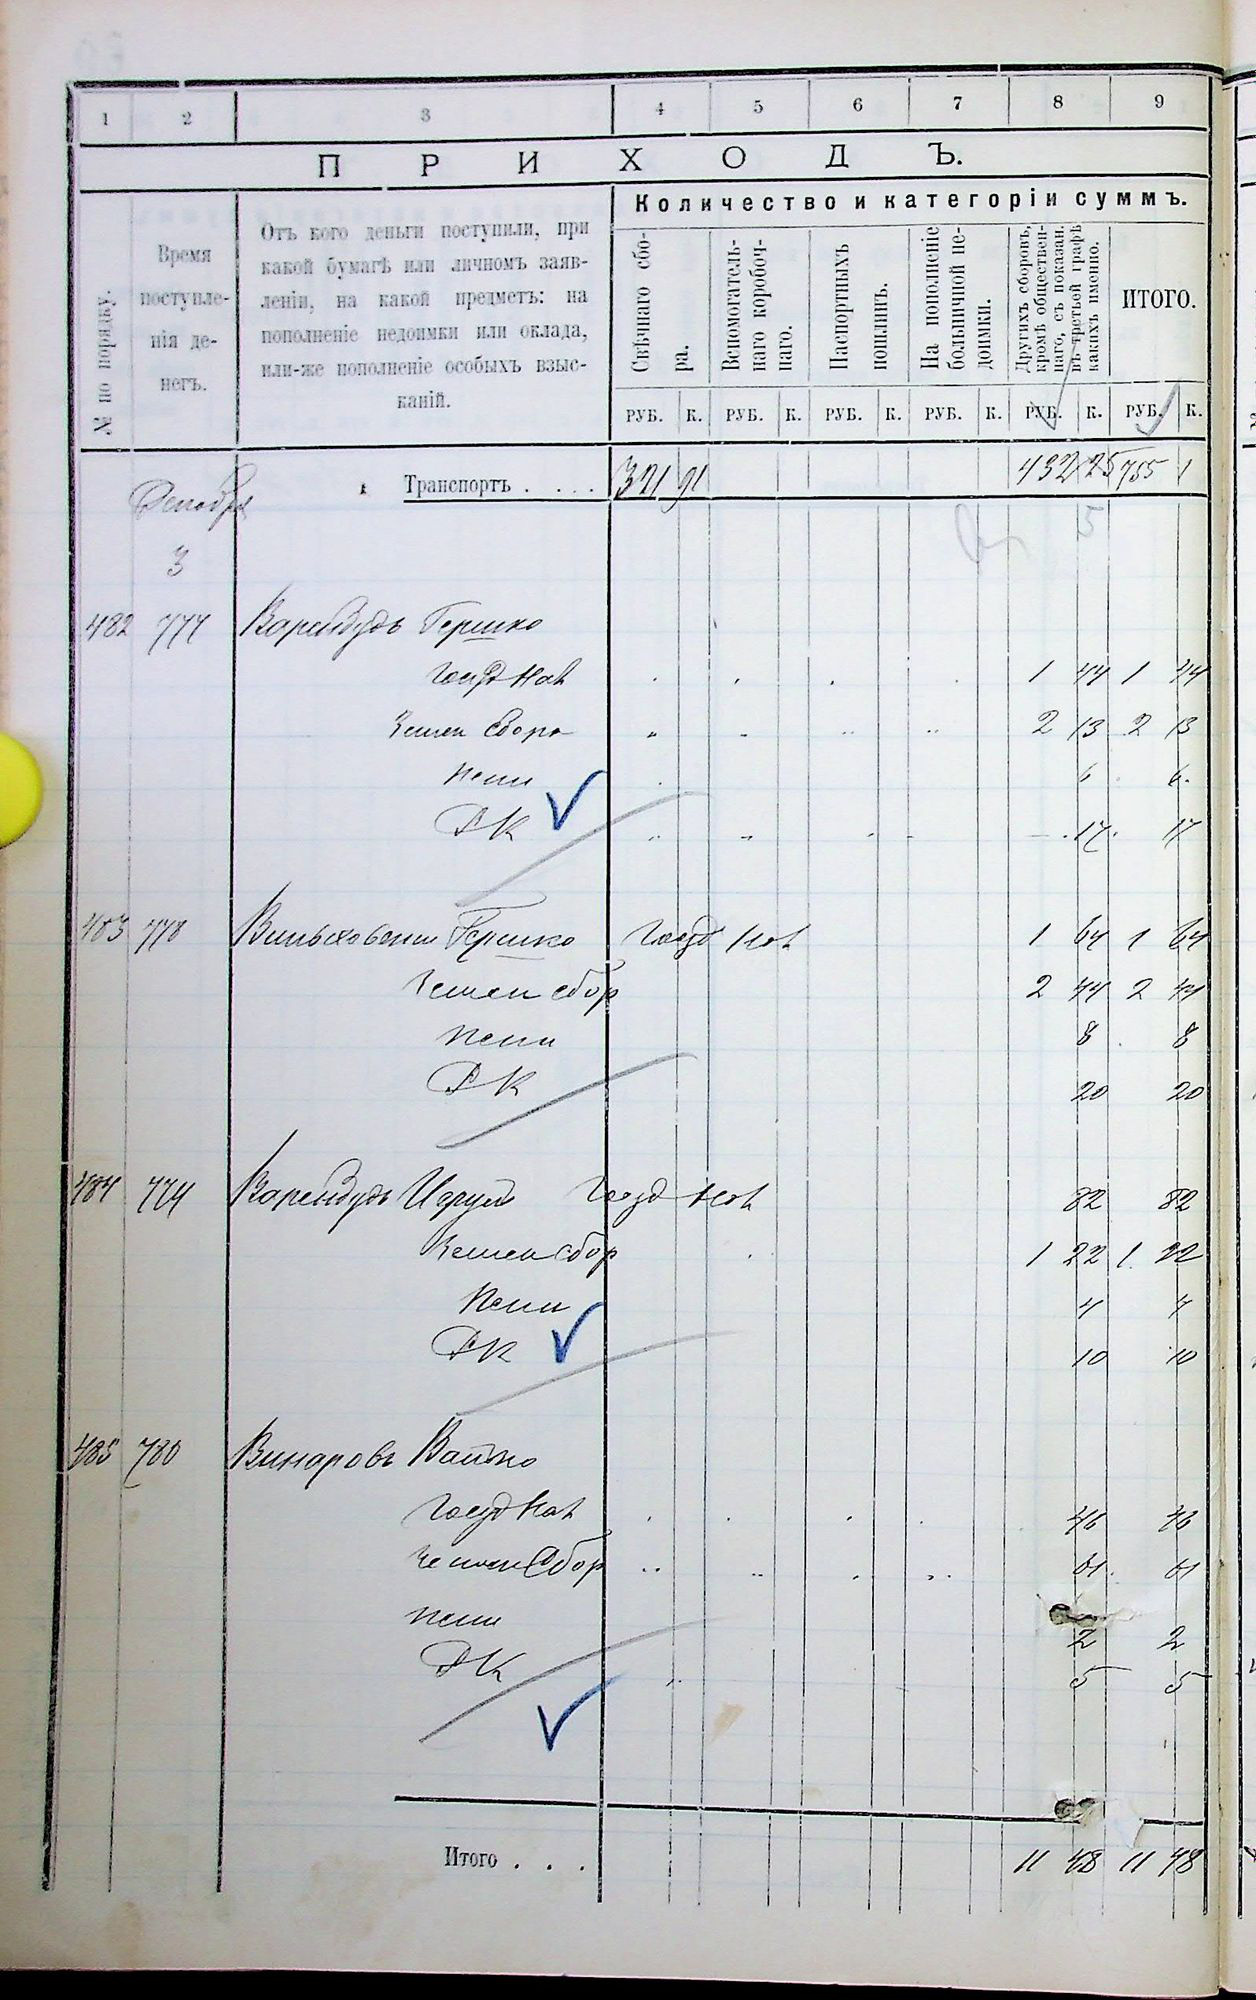 1 2 3 4 5 6 7 8 9
ПРИХОДЪ.
Количество и категоріи суммъ.
№ по порядку.
Время поступле-
нія де-
негъ.
Отъ кого деньги поступили, при
какой бумагѣ или личномъ заяв-
леніи, на какой предметъ: на
пополненіе недоимки или оклада,
или-же пополненіе особыхъ взыс-
каній.
Свѣчнаго сбо-
ра.
Вспомогатель-
наго коробоч-
наго.
Паспортныхъ
пошлинъ.
На пополненіе
больничной не-
доимки.
Другихъ сборовъ,
кромѣ обществен-
наго, съ показан.
въ третьей графѣ
какихъ именно.
ИТОГО.
РУБ. К. РУБ. К. РУБ. К. РУБ. К. РУБ. К. РУБ. К.
Транспортъ . . . . 321 91 432 25 755 1
Декабря
5
3
482 777 Гершко
Госуд Нал 1 44 1 44
Земск Сбора 2 13 2 13
Пени 6 6
РК 17 17
483 778 Гершко Госуд Нал 1 64 1 64
Земск сбор 2 44 2 44
Пени 8 8
РК 20 20
484 779 Госуд Нал 82 82
Земск Сбор 1 22 1 22
Пени 4 4
РК 10 10
485 780 Винаровъ
Госуд Нал 46 46
Земск Сбор 61 61
Пени 2 2
РК 5 5
Итого . . . 11 48 11 48